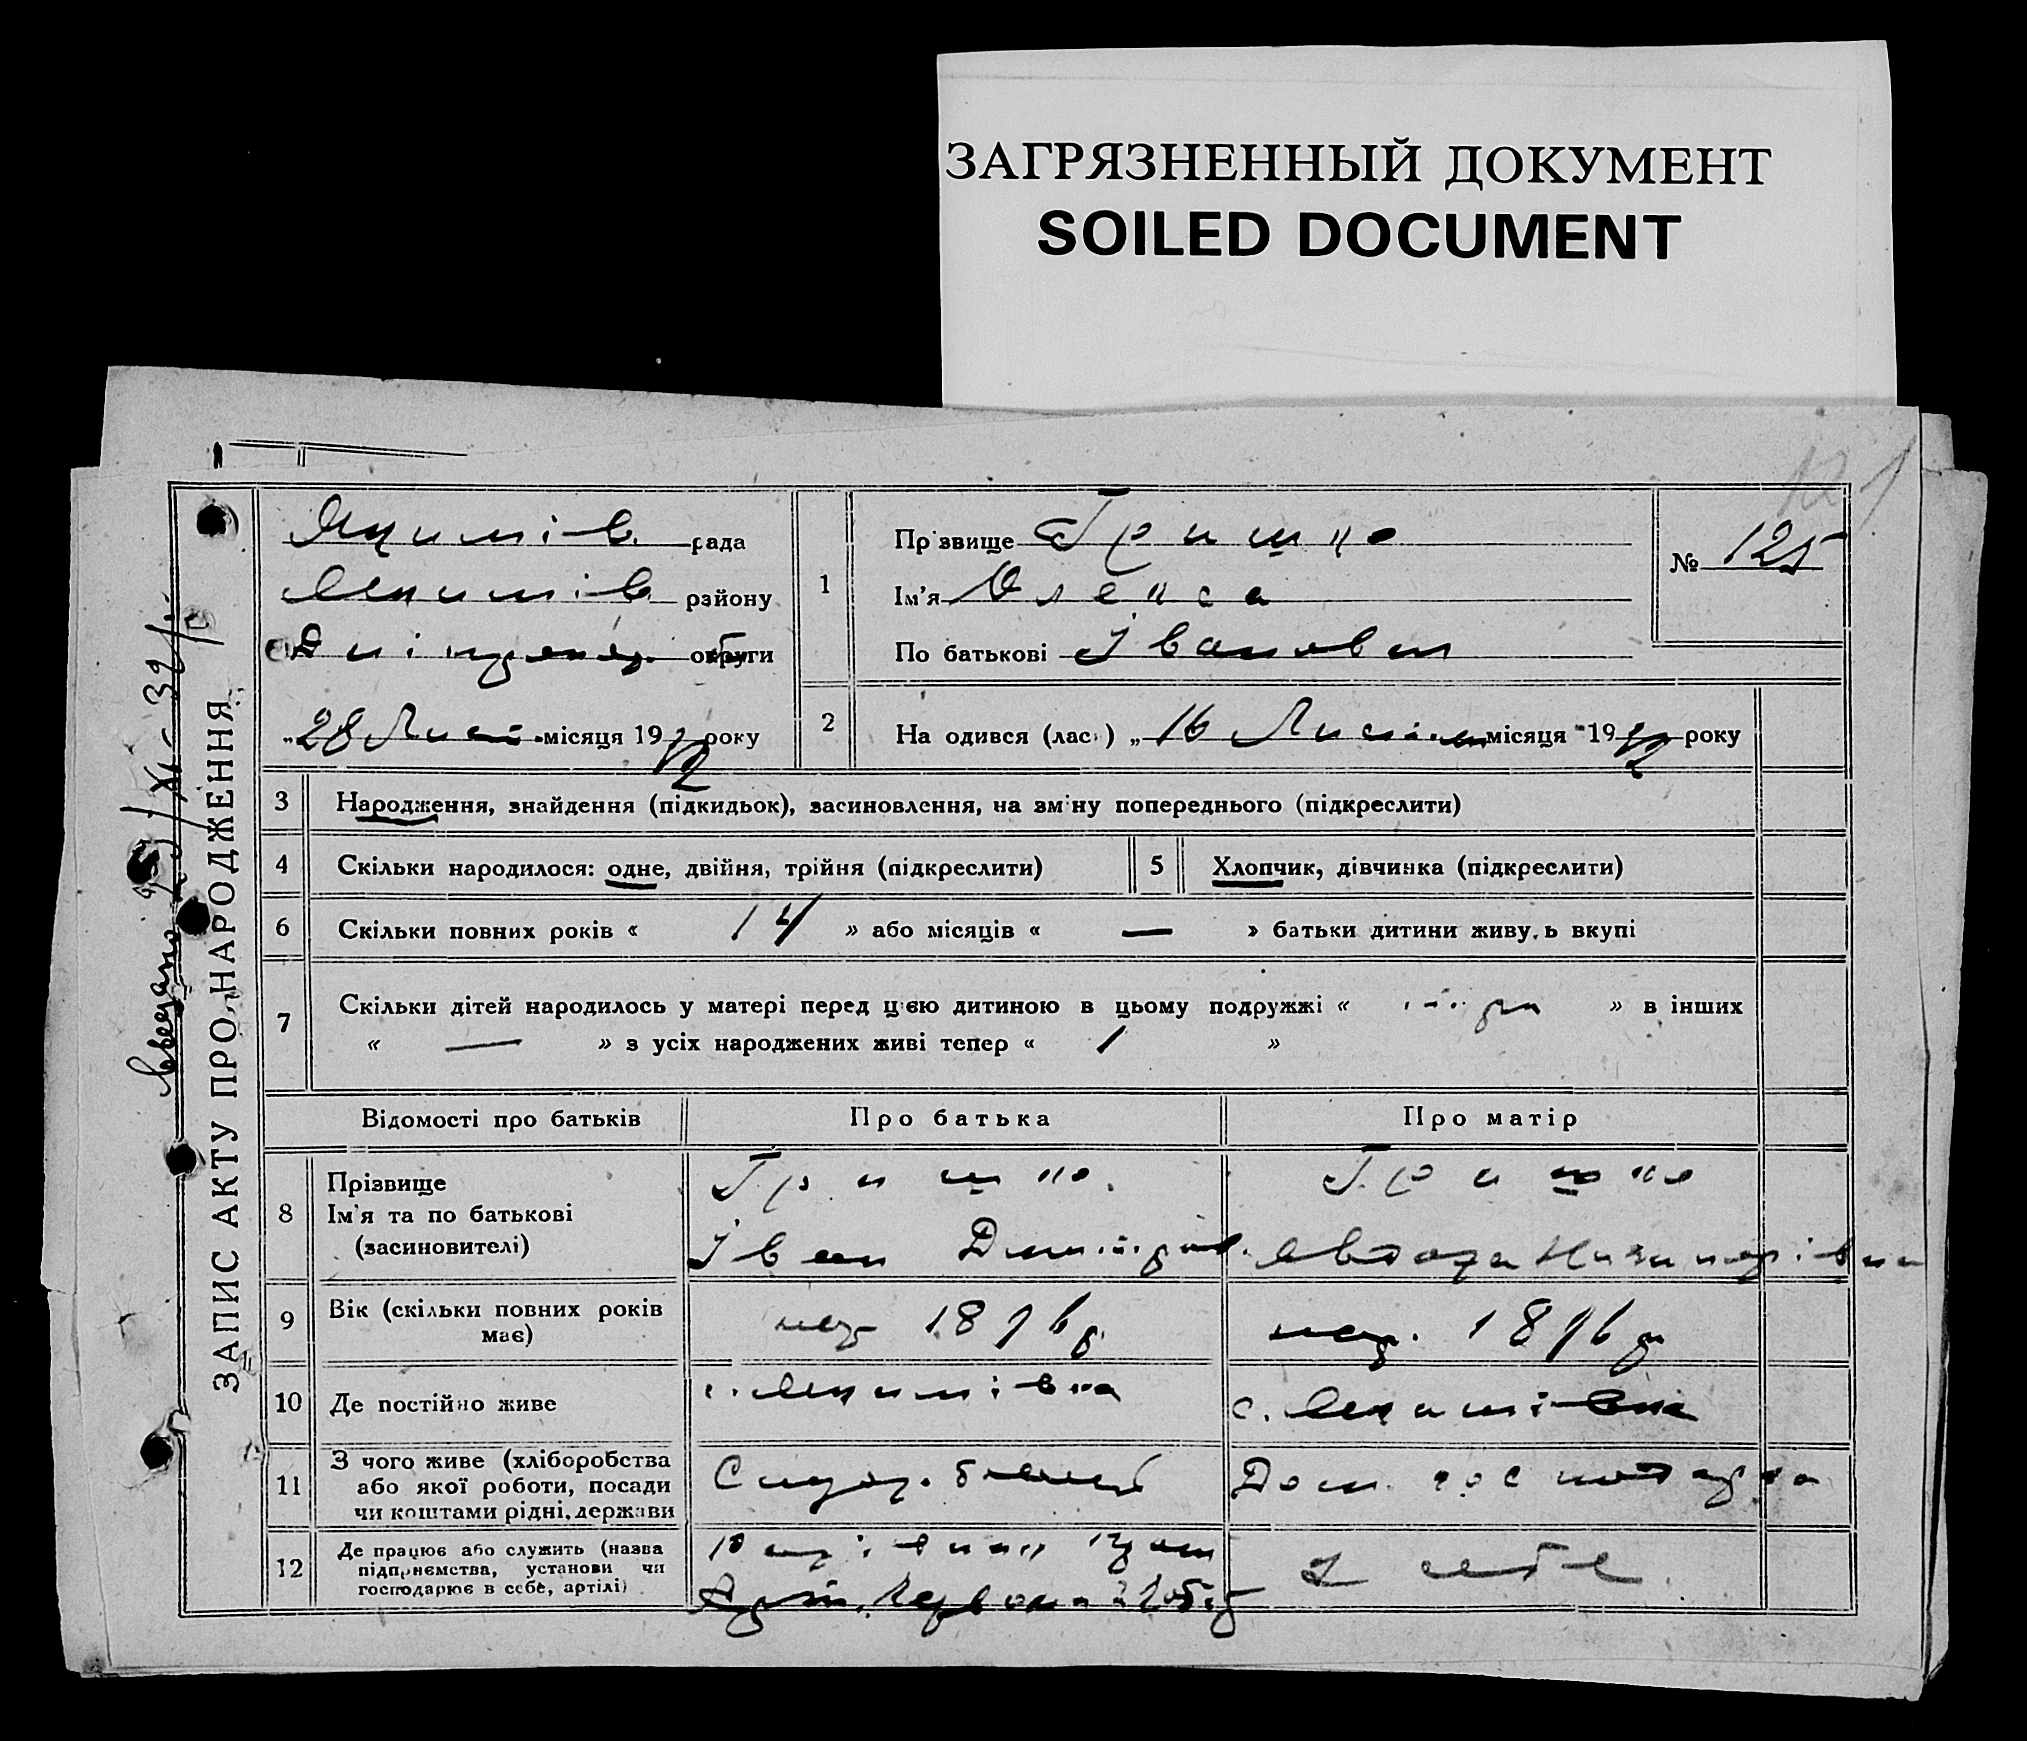 ЗАГРЯЗНЕННЫЙ ДОКУМЕНТ
SOILED DOCUMENT
ЗАПИС АКТУ ПРО НАРОДЖЕННЯ
Якимів. рада
Якимів. району
округи
„28 Лист. місяця 1932 року
1
Прізвище Гришко
Ім'я Олекса
По батькові Іванович
№ 125
2
На одився (лась) „16 Листоп місяця 1932 року
3 Народження, знайдення (підкидьок), засиновлення, на зміну попереднього (підкреслити)
4 Скільки народилося: одне, двійня, трійня (підкреслити)
5 Хлопчик, дівчинка (підкреслити)
6 Скільки повних років « 14 » або місяців « — » батьки дитини живуть вкупі
7 Скільки дітей народилось у матері перед цією дитиною в цьому подружжі « » в інших
« — » з усіх народжених живі тепер « 1 »
Відомості про батьків
Про батька
Про матір
8 Прізвище
Ім'я та по батькові
(засиновителі)
Гришко.
Іван Дмитров.
Гришко
Явдоха
9 Вік (скільки повних років
має)
нар 1896 р.
нар. 1896 р
10 Де постійно живе
с. Якимівка
с. Якимівка
11 З чого живе (хліборобства
або якої роботи, посади
чи коштами рідні, держави
Дом. господарка
12 Де працює або служить (назва
підприємства, установи чи
господарює в себе, артілі)
Арт. Червоний
у себе